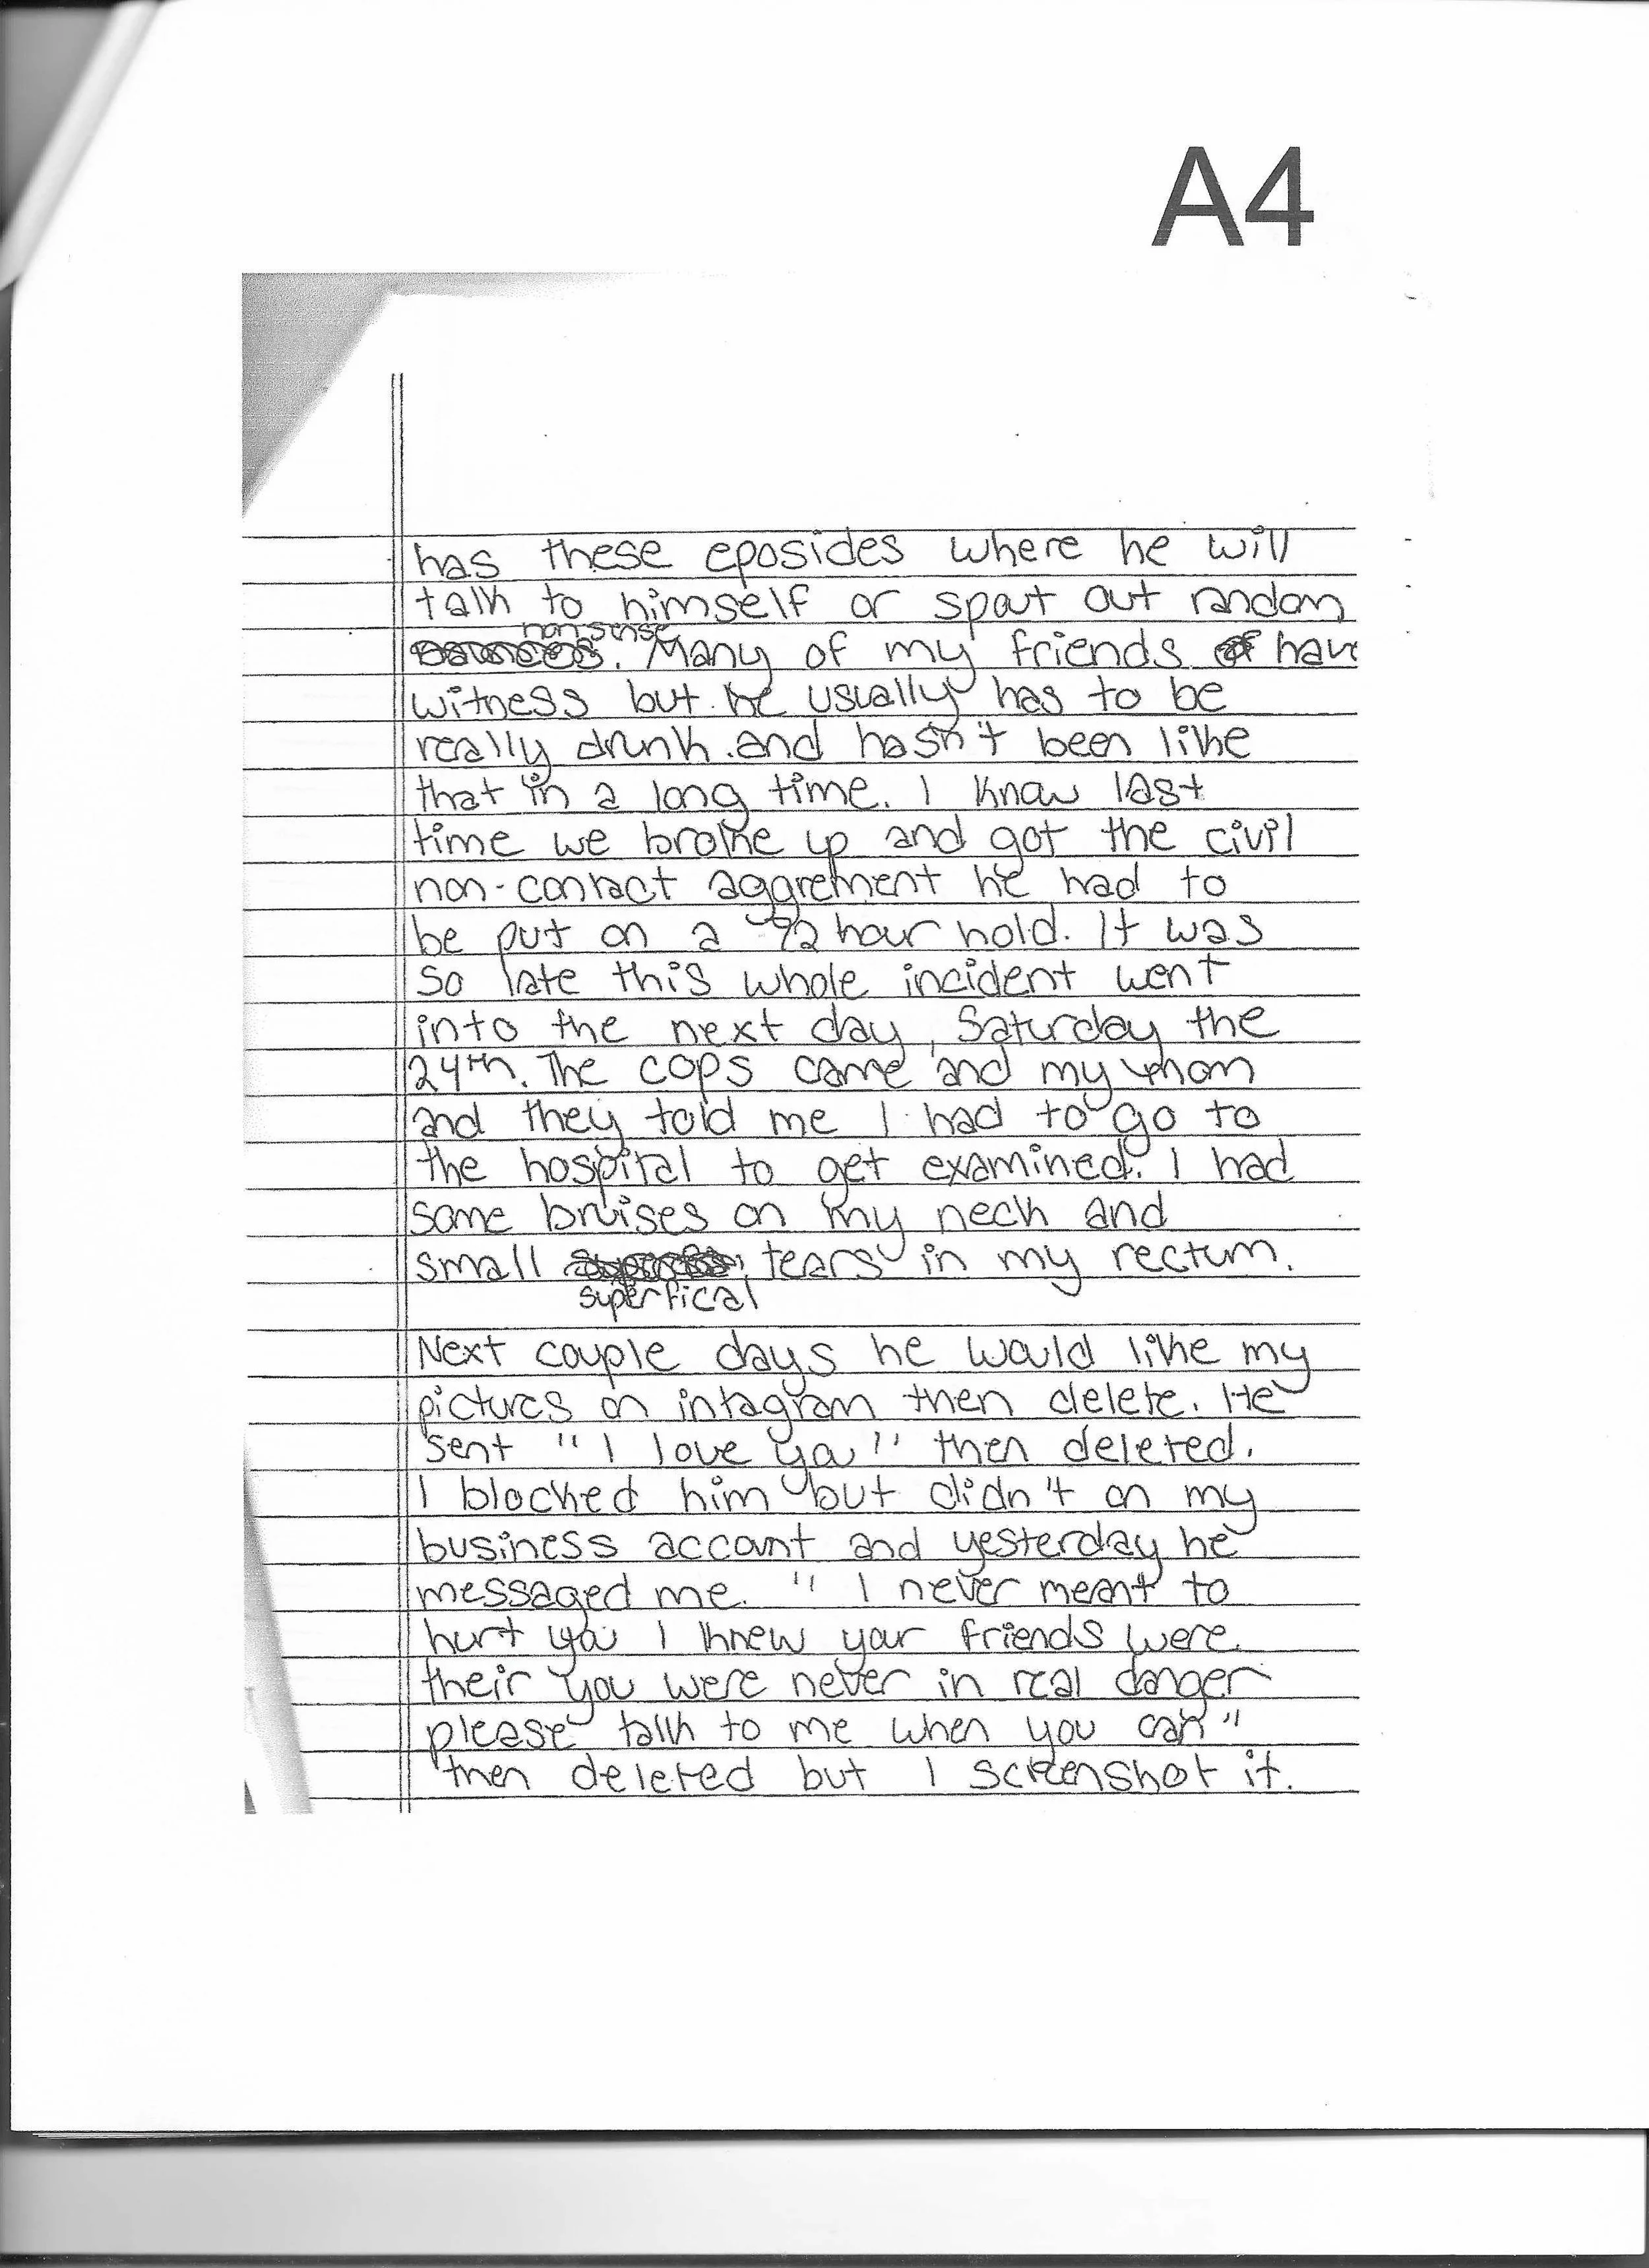 A4
has these eposides where he will
talk to himself or spout out random
nonsense
. Many of my friends have
witness but he usually has to be
really drunk and hasn't been like
that in a long time. I know last
time we broke up and got the civil
non-contact aggrement he had to
be put on a 72 hour hold. It was
so late this whole incident went
into the next day, Saturday the
24th. The cops came and my mom
and they told me I had to go to
the hospital to get examined. I had
some bruises on my neck and
small tears in my rectum.
superfical
Next couple days he would like my
pictures on intagram then delete. He
sent "I love you" then deleted.
I blocked him but didn't on my
business account and yesterday he
messaged me. "I never meant to
hurt you I knew your friends were
their you were never in real danger
please talk to me when you can"
then deleted but I screenshot it.